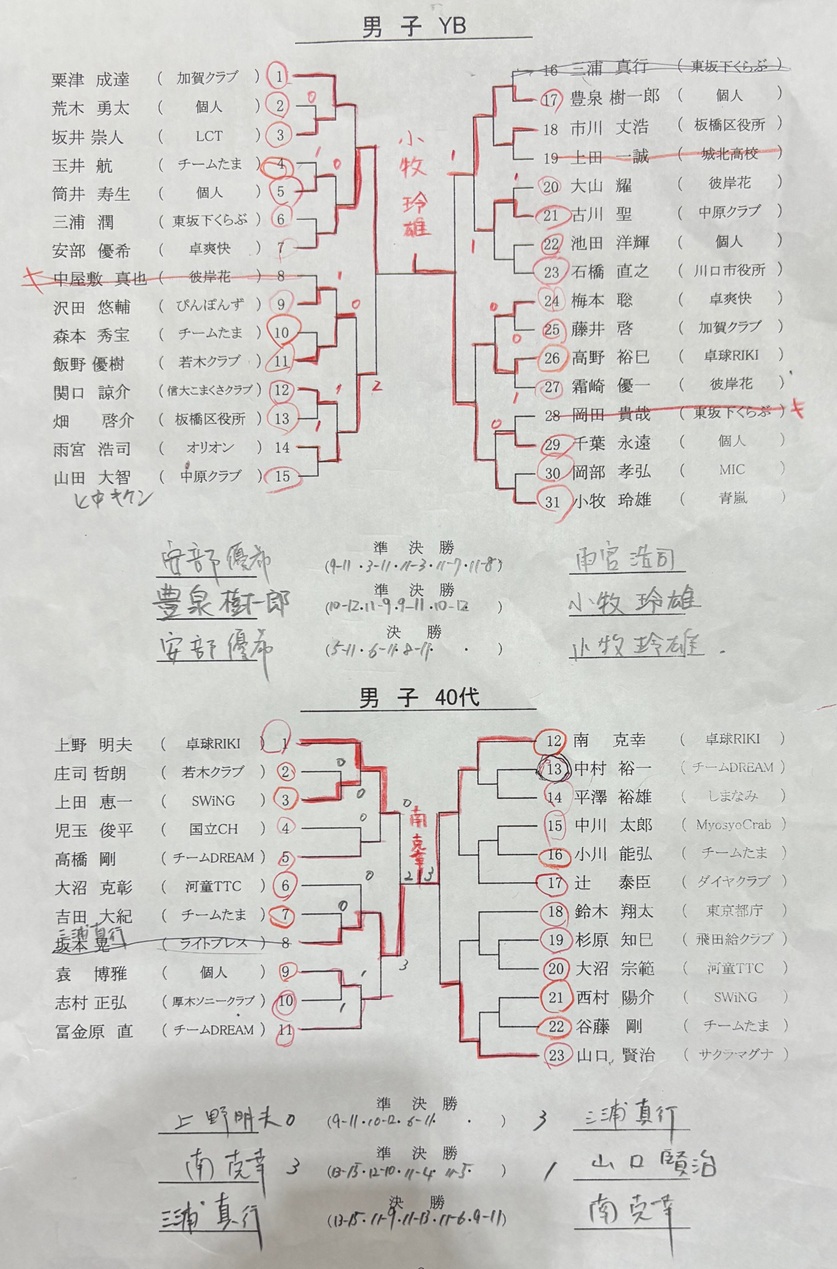 男 子 YB
粟津 成達 ( 加賀クラブ ) 1
荒木 勇太 ( 個人 ) 2
坂井 崇人 ( LCT ) 3
玉井 航 ( チームたま ) 4
筒井 寿生 ( 個人 ) 5
三浦 潤 ( 東坂下くらぶ ) 6
安部 優希 ( 卓爽快 ) 7
中屋敷 真也 ( 彼岸花 ) 8
沢田 悠輔 ( ぴんぽんず ) 9
森本 秀宝 ( チームたま ) 10
飯野 優樹 ( 若木クラブ ) 11
関口 諒介 ( 信大こまくさクラブ ) 12
畑 啓介 ( 板橋区役所 ) 13
雨宮 浩司 ( オリオン ) 14
山田 大智 ( 中原クラブ ) 15
と中キケン
小牧 玲雄
16 三浦 真行 ( 東坂下くらぶ )
17 豊泉 樹一郎 ( 個人 )
18 市川 丈浩 ( 板橋区役所 )
19 上田 一誠 ( 城北高校 )
20 大山 耀 ( 彼岸花 )
21 古川 聖 ( 中原クラブ )
22 池田 洋輝 ( 個人 )
23 石橋 直之 ( 川口市役所 )
24 梅本 聡 ( 卓爽快 )
25 藤井 啓 ( 加賀クラブ )
26 高野 裕巳 ( 卓球RIKI )
27 霜崎 優一 ( 彼岸花 )
28 岡田 貴哉 ( 東坂下くらぶ )
29 千葉 永遠 ( 個人 )
30 岡部 孝弘 ( MIC )
31 小牧 玲雄 ( 青嵐 )
準 決 勝
安部 優希 (9-11・3-11・11-3・11-7・11-8) 雨宮 浩司
準 決 勝
豊泉 樹一郎 (10-12・11-9・9-11・10-12 ) 小牧 玲雄
決 勝
安部 優希 (5-11・6-11・8-11・ ・ ) 小牧 玲雄
男 子 40代
上野 明夫 ( 卓球RIKI ) 1
庄司 哲朗 ( 若木クラブ ) 2
上田 恵一 ( SWiNG ) 3
児玉 俊平 ( 国立CH ) 4
高橋 剛 ( チームDREAM ) 5
大沼 克彰 ( 河童TTC ) 6
吉田 大紀 ( チームたま ) 7
三浦 真行
坂本 晃一 ( ライトプレス ) 8
袁 博雅 ( 個人 ) 9
志村 正弘 ( 厚木ソニークラブ ) 10
冨金原 直 ( チームDREAM ) 11
南 克幸
12 南 克幸 ( 卓球RIKI )
13 中村 裕一 ( チームDREAM )
14 平澤 裕雄 ( しまなみ )
15 中川 太郎 ( MyosyoCrab )
16 小川 能弘 ( チームたま )
17 辻 泰臣 ( ダイヤクラブ )
18 鈴木 翔太 ( 東京都庁 )
19 杉原 知巳 ( 飛田給クラブ )
20 大沼 宗範 ( 河童TTC )
21 西村 陽介 ( SWiNG )
22 谷藤 剛 ( チームたま )
23 山口 賢治 ( サクラマグナ )
準 決 勝
上野 明夫 0 (9-11・10-12・6-11・ ・ ) 3 三浦 真行
準 決 勝
南 克幸 3 (13-15・12-10・11-4・11-5・ ) 1 山口 賢治
決 勝
三浦 真行 (13-15・11-9・11-13・11-6・9-11) 南 克幸